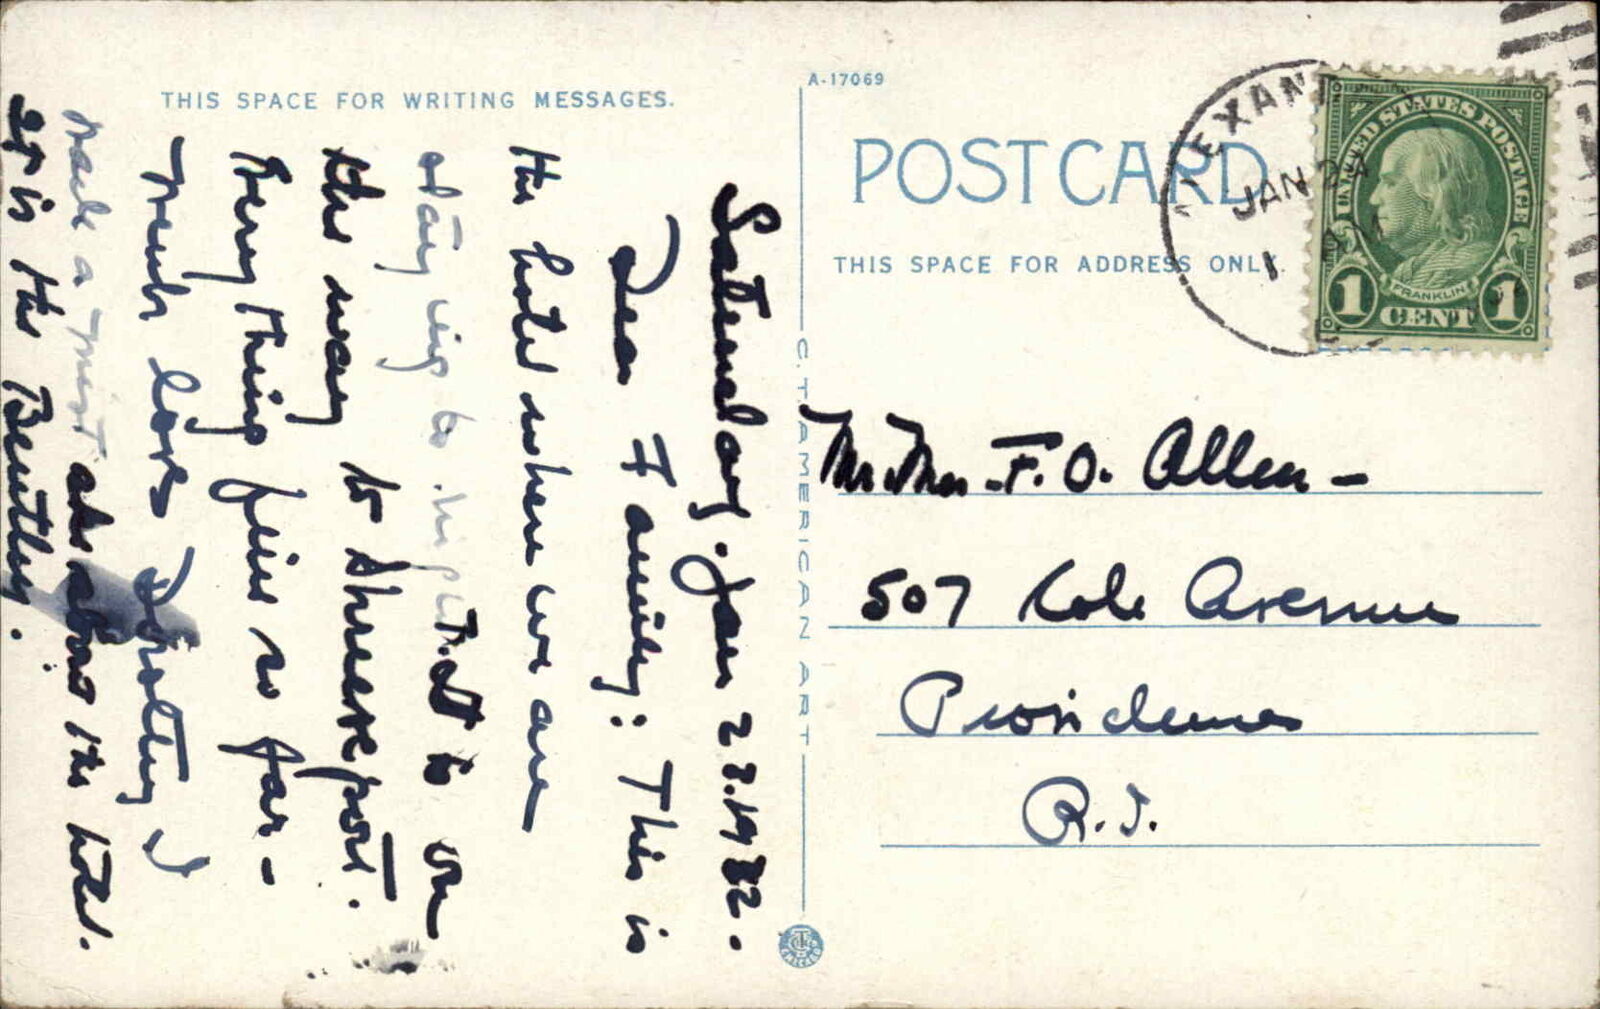 THIS SPACE FOR WRITING MESSAGES.
Saturday. Jan 23. 1932.
Dear Family: This is
the hotel where we are
staying to night. at is on
the way to Shreveport.
Every thing fine so far -
Much love Dorothy
made a at about the hotel.
It is the Bentley.
A-17069
POST CARD
THIS SPACE FOR ADDRESS ONLY.
C. T. AMERICAN ART
CHICAGO
ALEXAN
JAN 24
1
UNITED STATES POSTAGE
FRANKLIN
1 CENT 1
Mr. & Mrs. F. O. Allen -
507 Cole Avenue
Providence
R. I.